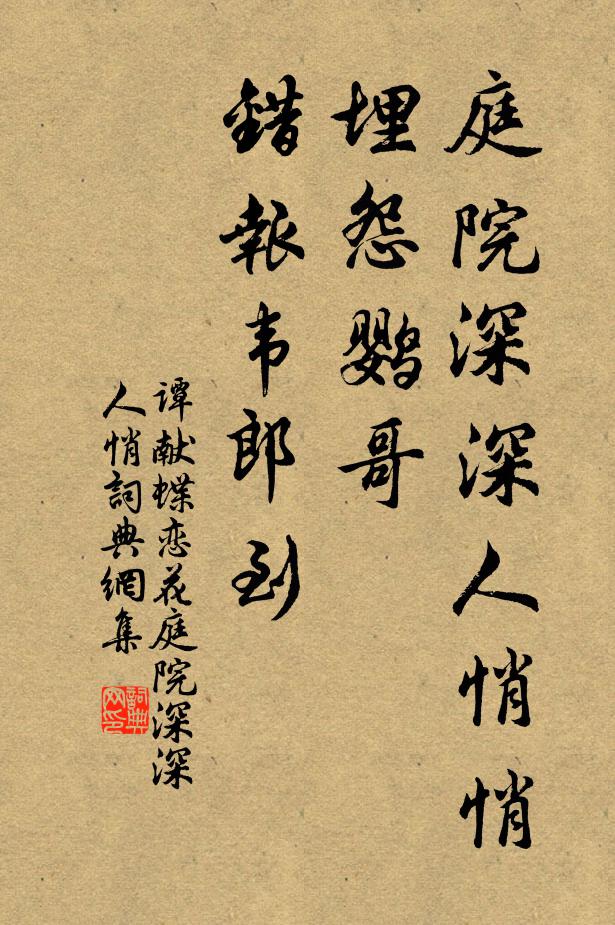 庭院深深人悄悄
埋怨鹦哥
錯報韦郎到
谭献蝶恋花庭院深深
人悄詞典網集
詞典网印